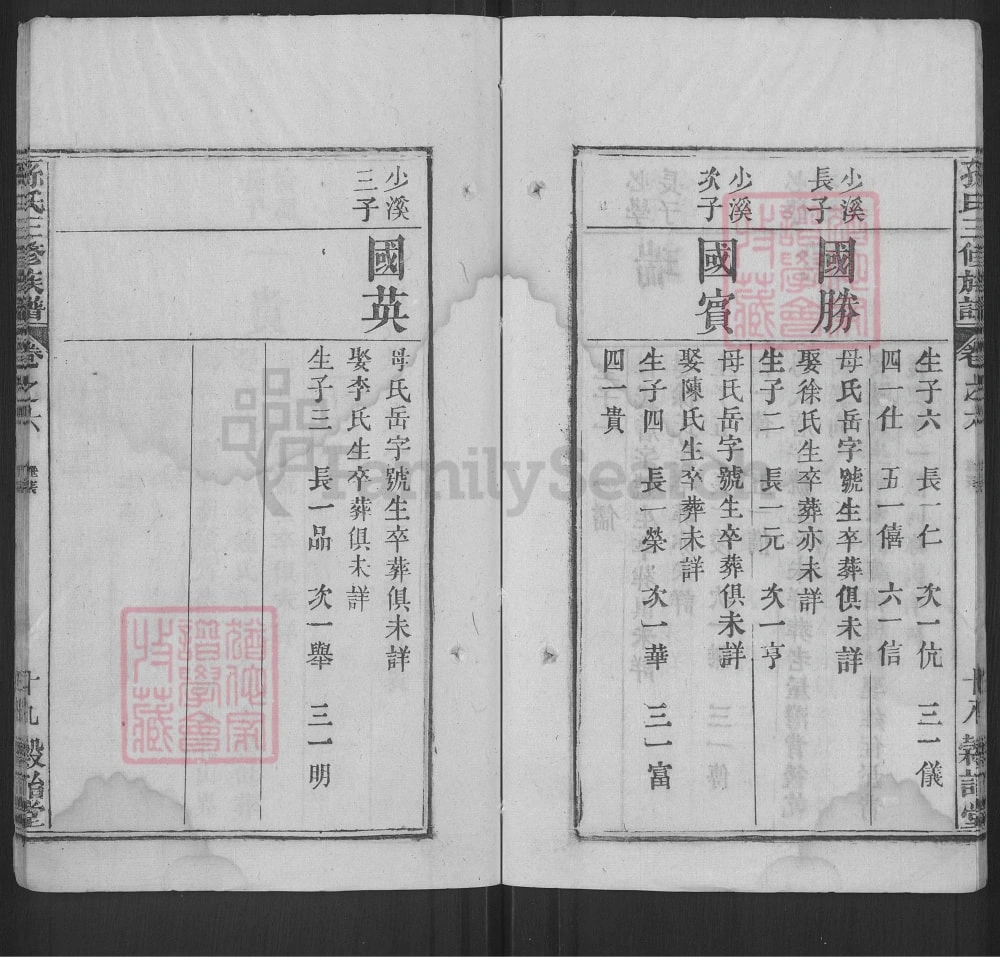 孫氏三修族譜 卷之六 十八 穀詒堂
生子六 長一仁 次一伉 三一儀
四一仕 五一僖 六一信
少溪長子
國勝
母氏岳字號生卒葬俱未詳
娶徐氏生卒葬亦未詳
生子二 長一元 次一亨
少溪次子
國賓
母氏岳字號生卒葬俱未詳
娶陳氏生卒葬未詳
生子四 長一榮 次一華 三一富
四一貴
少溪三子
國英
母氏岳字號生卒葬俱未詳
娶李氏生卒葬俱未詳
生子三 長一品 次一舉 三一明
孫氏三修族譜 卷之六 十九 穀詒堂
FamilySearch